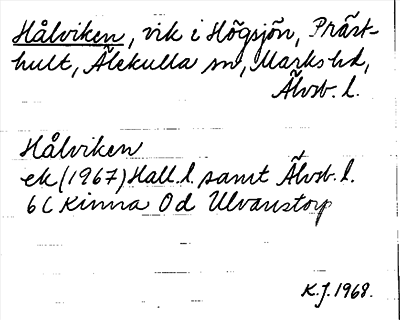 Hålviken, vik i Högsjön, Präst-
hult, Älekulla sn, Marks hd,
Älvsb. l.
Hålviken
ek (1967) Hall. l. samt Älvsb. l.
6 C Kinna 0 d Ulvanstorp
K.J. 1968.